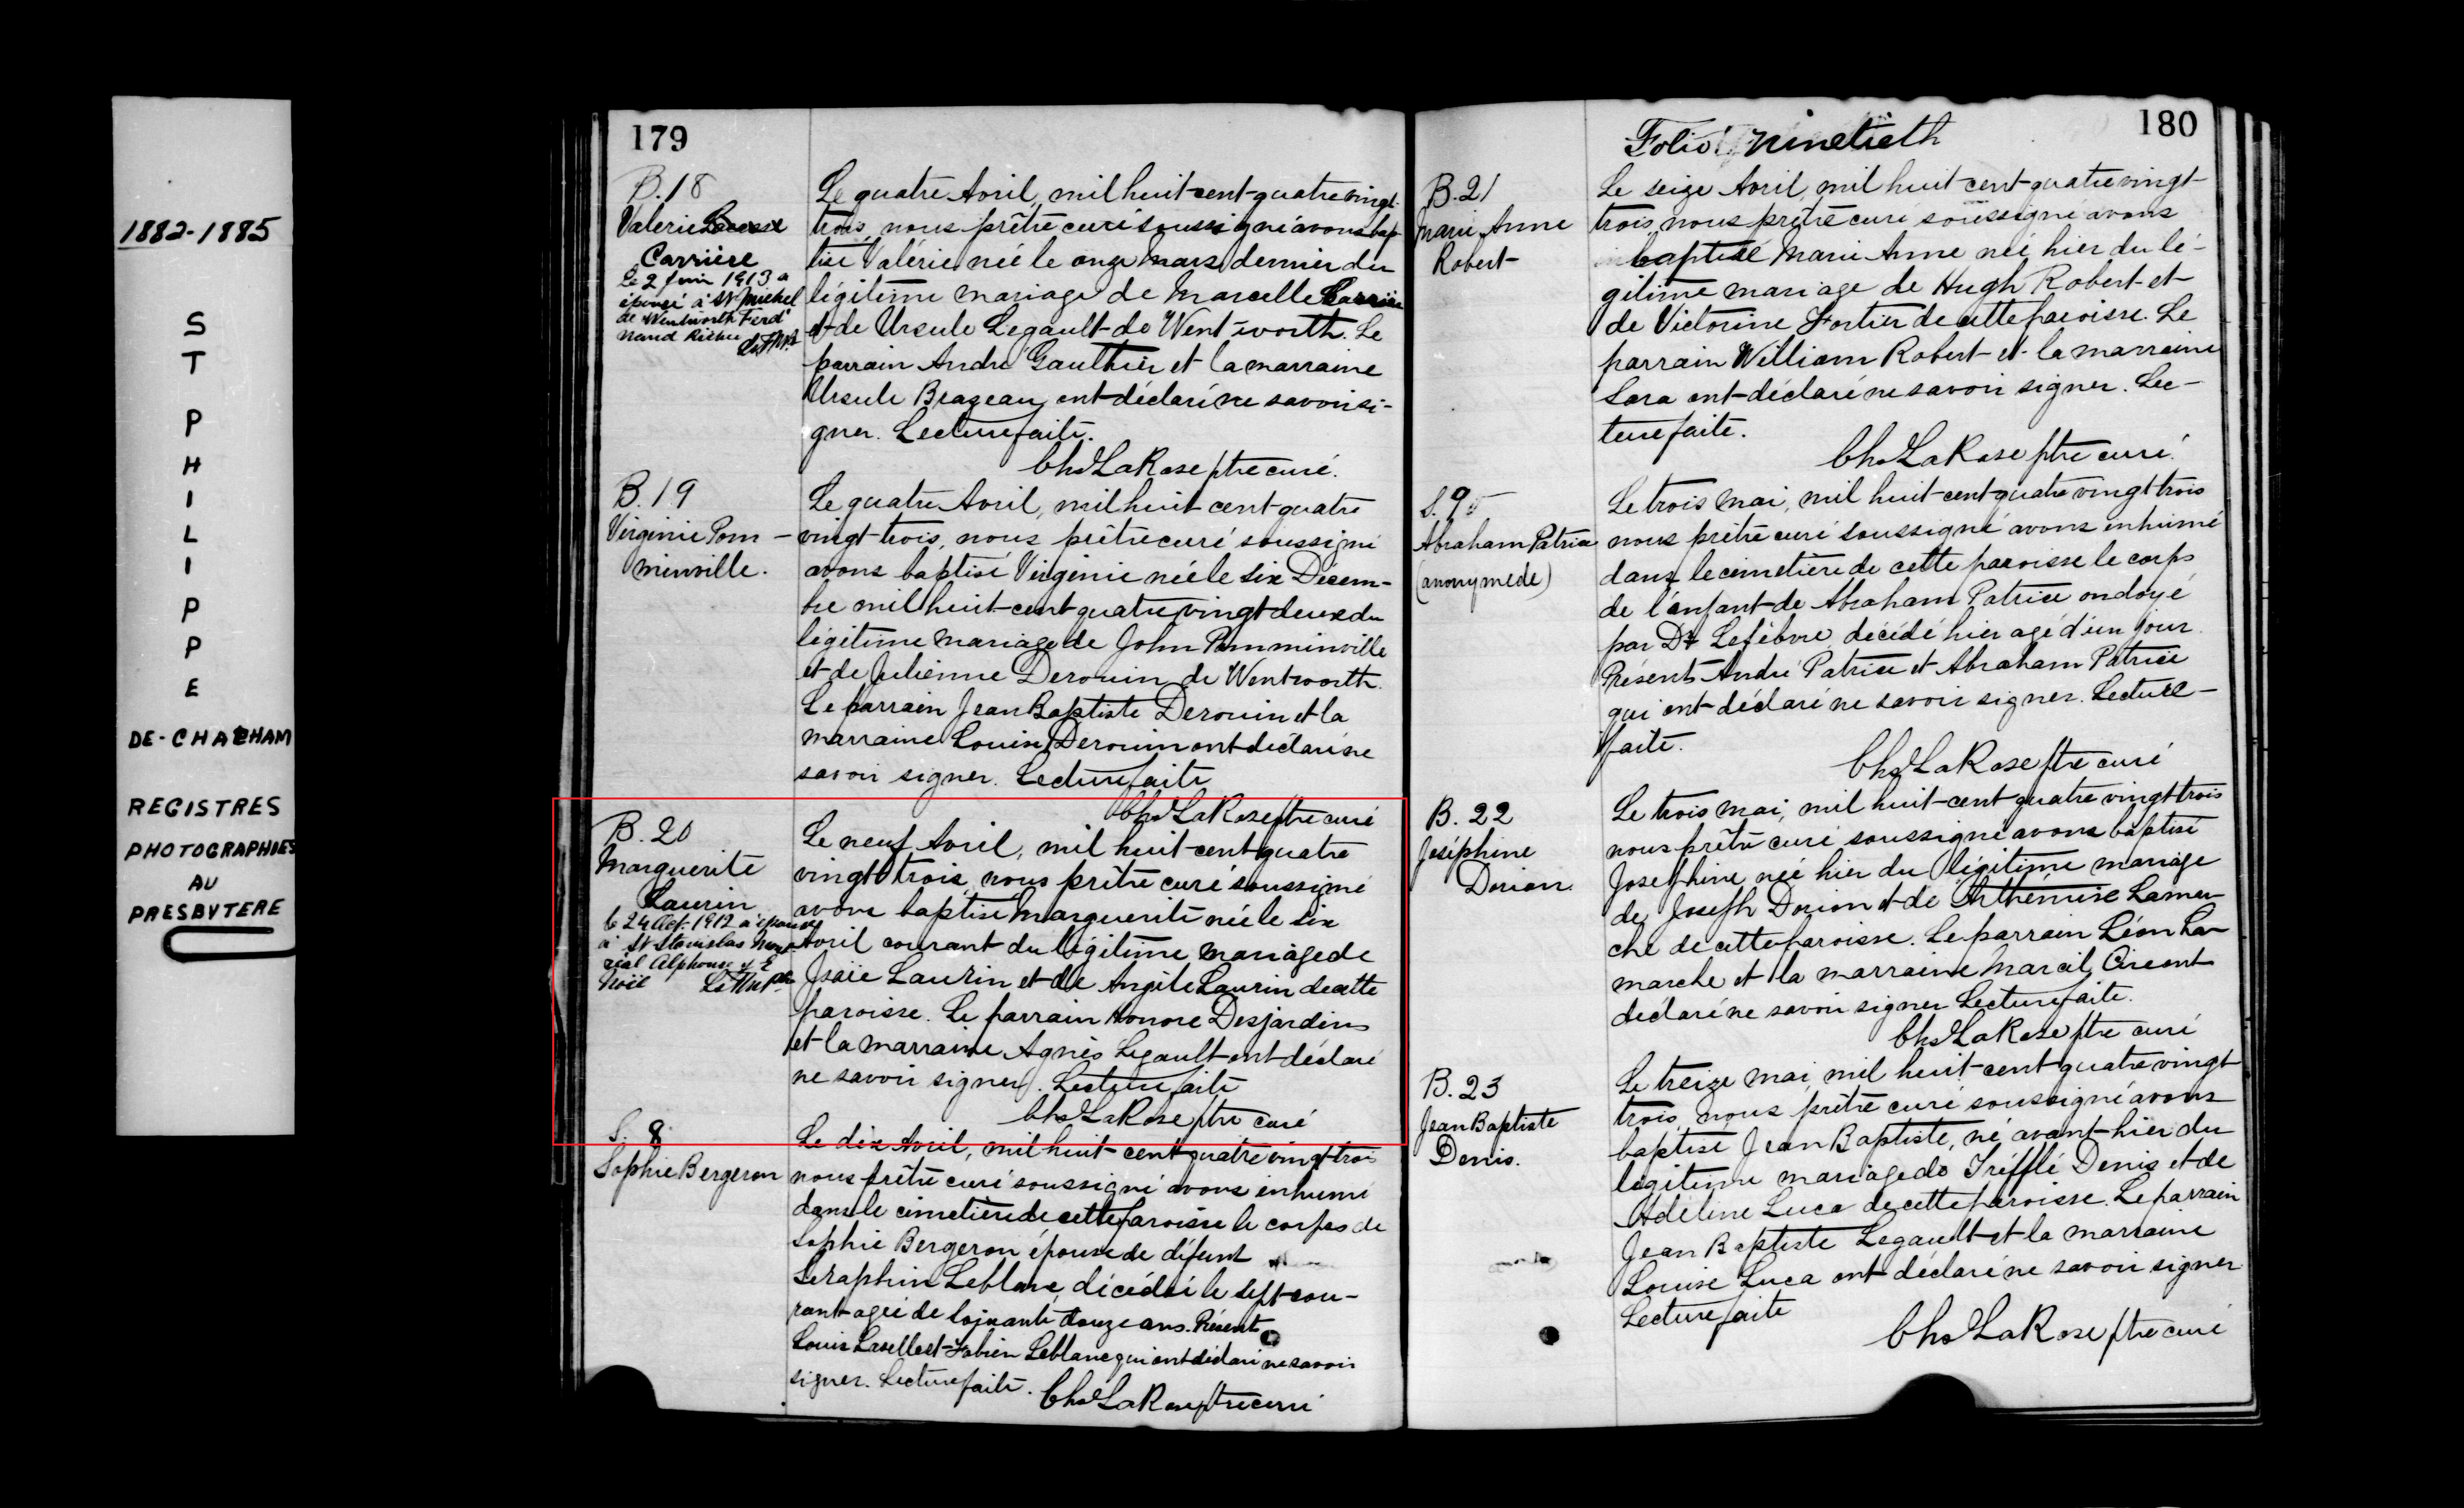 1882-1885
S
T
P
H
I
L
I
P
P
E
DE-CHATHAM
REGISTRES
PHOTOGRAPHIES
AU
PRESBYTERE
179
B.18
Valerie
Carrière
Le 2 Juin 1913 a
épousé à St Michel
de Wentworth Ferdi
nand Richer
Le quatre Avril, mil huit-cent-quatre vingt-
trois, nous prêtre curé soussigné avons bap-
tisé Valérie née le onze Mars dernier du
légitime mariage de Marcelle Carrière
et de Ursule Legault de Went-worth. Le
parrain André Gauthier et la marraine
Ursule Brazeau ont déclaré ne savoir si-
gner. Lecture faite.
Chs LaRose ptre curé.
B.19
Virginie Pom-
minville.
Le quatre Avril, mil huit cent-quatre
vingt-trois, nous prêtre curé soussigné
avons baptisé Virginie née le six Décem-
bre mil huit-cent quatre vingt deux du
légitime mariage de John Pomminville
et de Julienne Derouin de Wentworth.
Le parrain Jean Baptiste Derouin et la
marraine Louise Derouin ont déclaré ne
savoir signer. Lecture faite
Chs LaRose ptre curé
B.20
Marguerite
Laurin
le 24 Oct. 1912 a épousé
à St Stanislas
Alphonse
Noël
Le neuf Avril, mil huit-cent-quatre
vingt trois, nous prêtre curé soussigné
avons baptisé Marguerite née le six
Avril courant du légitime mariage de
Isaïe Laurin et de Angèle Laurin de cette
paroisse. Le parrain Honoré Desjardins
et la marraine Agnès Legault ont déclaré
ne savoir signer. Lecture faite
Chs LaRose ptre curé
S. 8
Sophie Bergeron
Le dix Avril, mil huit-cent quatre vingt trois
nous prêtre curé soussigné avons inhumé
dans le cimetière de cette paroisse le corps de
Sophie Bergeron épouse de défunt
Seraphin Leblanc, décédée le sept cou-
rant agée de soixante douze ans. Présents
Louis et Fabien Leblanc qui ont déclaré ne savoir
signer. Lecture faite. Chs LaRose ptre curé
180
Folio ninetieth
B.21
Marie Anne
Robert
Le seize Avril, mil huit-cent-quatre vingt-
trois nous prêtre curé soussigné avons
baptisé Marie Anne née hier du lé-
gitime mariage de Hugh Robert et
de Victorine Fortier de cette paroisse. Le
parrain William Robert et la marraine
Sara ont déclaré ne savoir signer. Lec-
ture faite.
Chs LaRose ptre curé.
S. 9
Abraham Patrice
(anonyme de)
Le trois mai, mil huit-cent-quatre vingt trois
nous prêtre curé soussigné avons inhumé
dans le cimetière de cette paroisse le corps
de l'enfant de Abraham Patrice ondoyé
par Dr Lefèbvre, décédé hier agé d'un jour.
Présents André Patrice et Abraham Patrice
qui ont déclaré ne savoir signer. Lecture
faite.
Chs LaRose ptre curé
B. 22
Joséphine
Dorion.
Le trois mai, mil huit-cent-quatre vingt trois
nous prêtre curé soussigné avons baptisé
Josephine née hier du légitime mariage
de Joseph Dorion et de Arthémise Lamar-
che de cette paroisse. Le parrain Léon La-
marche et la marraine Marcil ont
déclaré ne savoir signer Lecture faite.
Chs LaRose ptre curé
B.23
Jean Baptiste
Denis.
Le treize mai, mil huit-cent-quatre vingt
trois, nous prêtre curé soussigné avons
baptisé Jean Baptiste, né avant-hier du
légitime mariage de Trefflé Denis et de
Adéline Luca de cette paroisse. Le parrain
Jean Baptiste Legault et la marraine
Louise Luca ont déclaré ne savoir signer
Lecture faite
Chs LaRose ptre curé